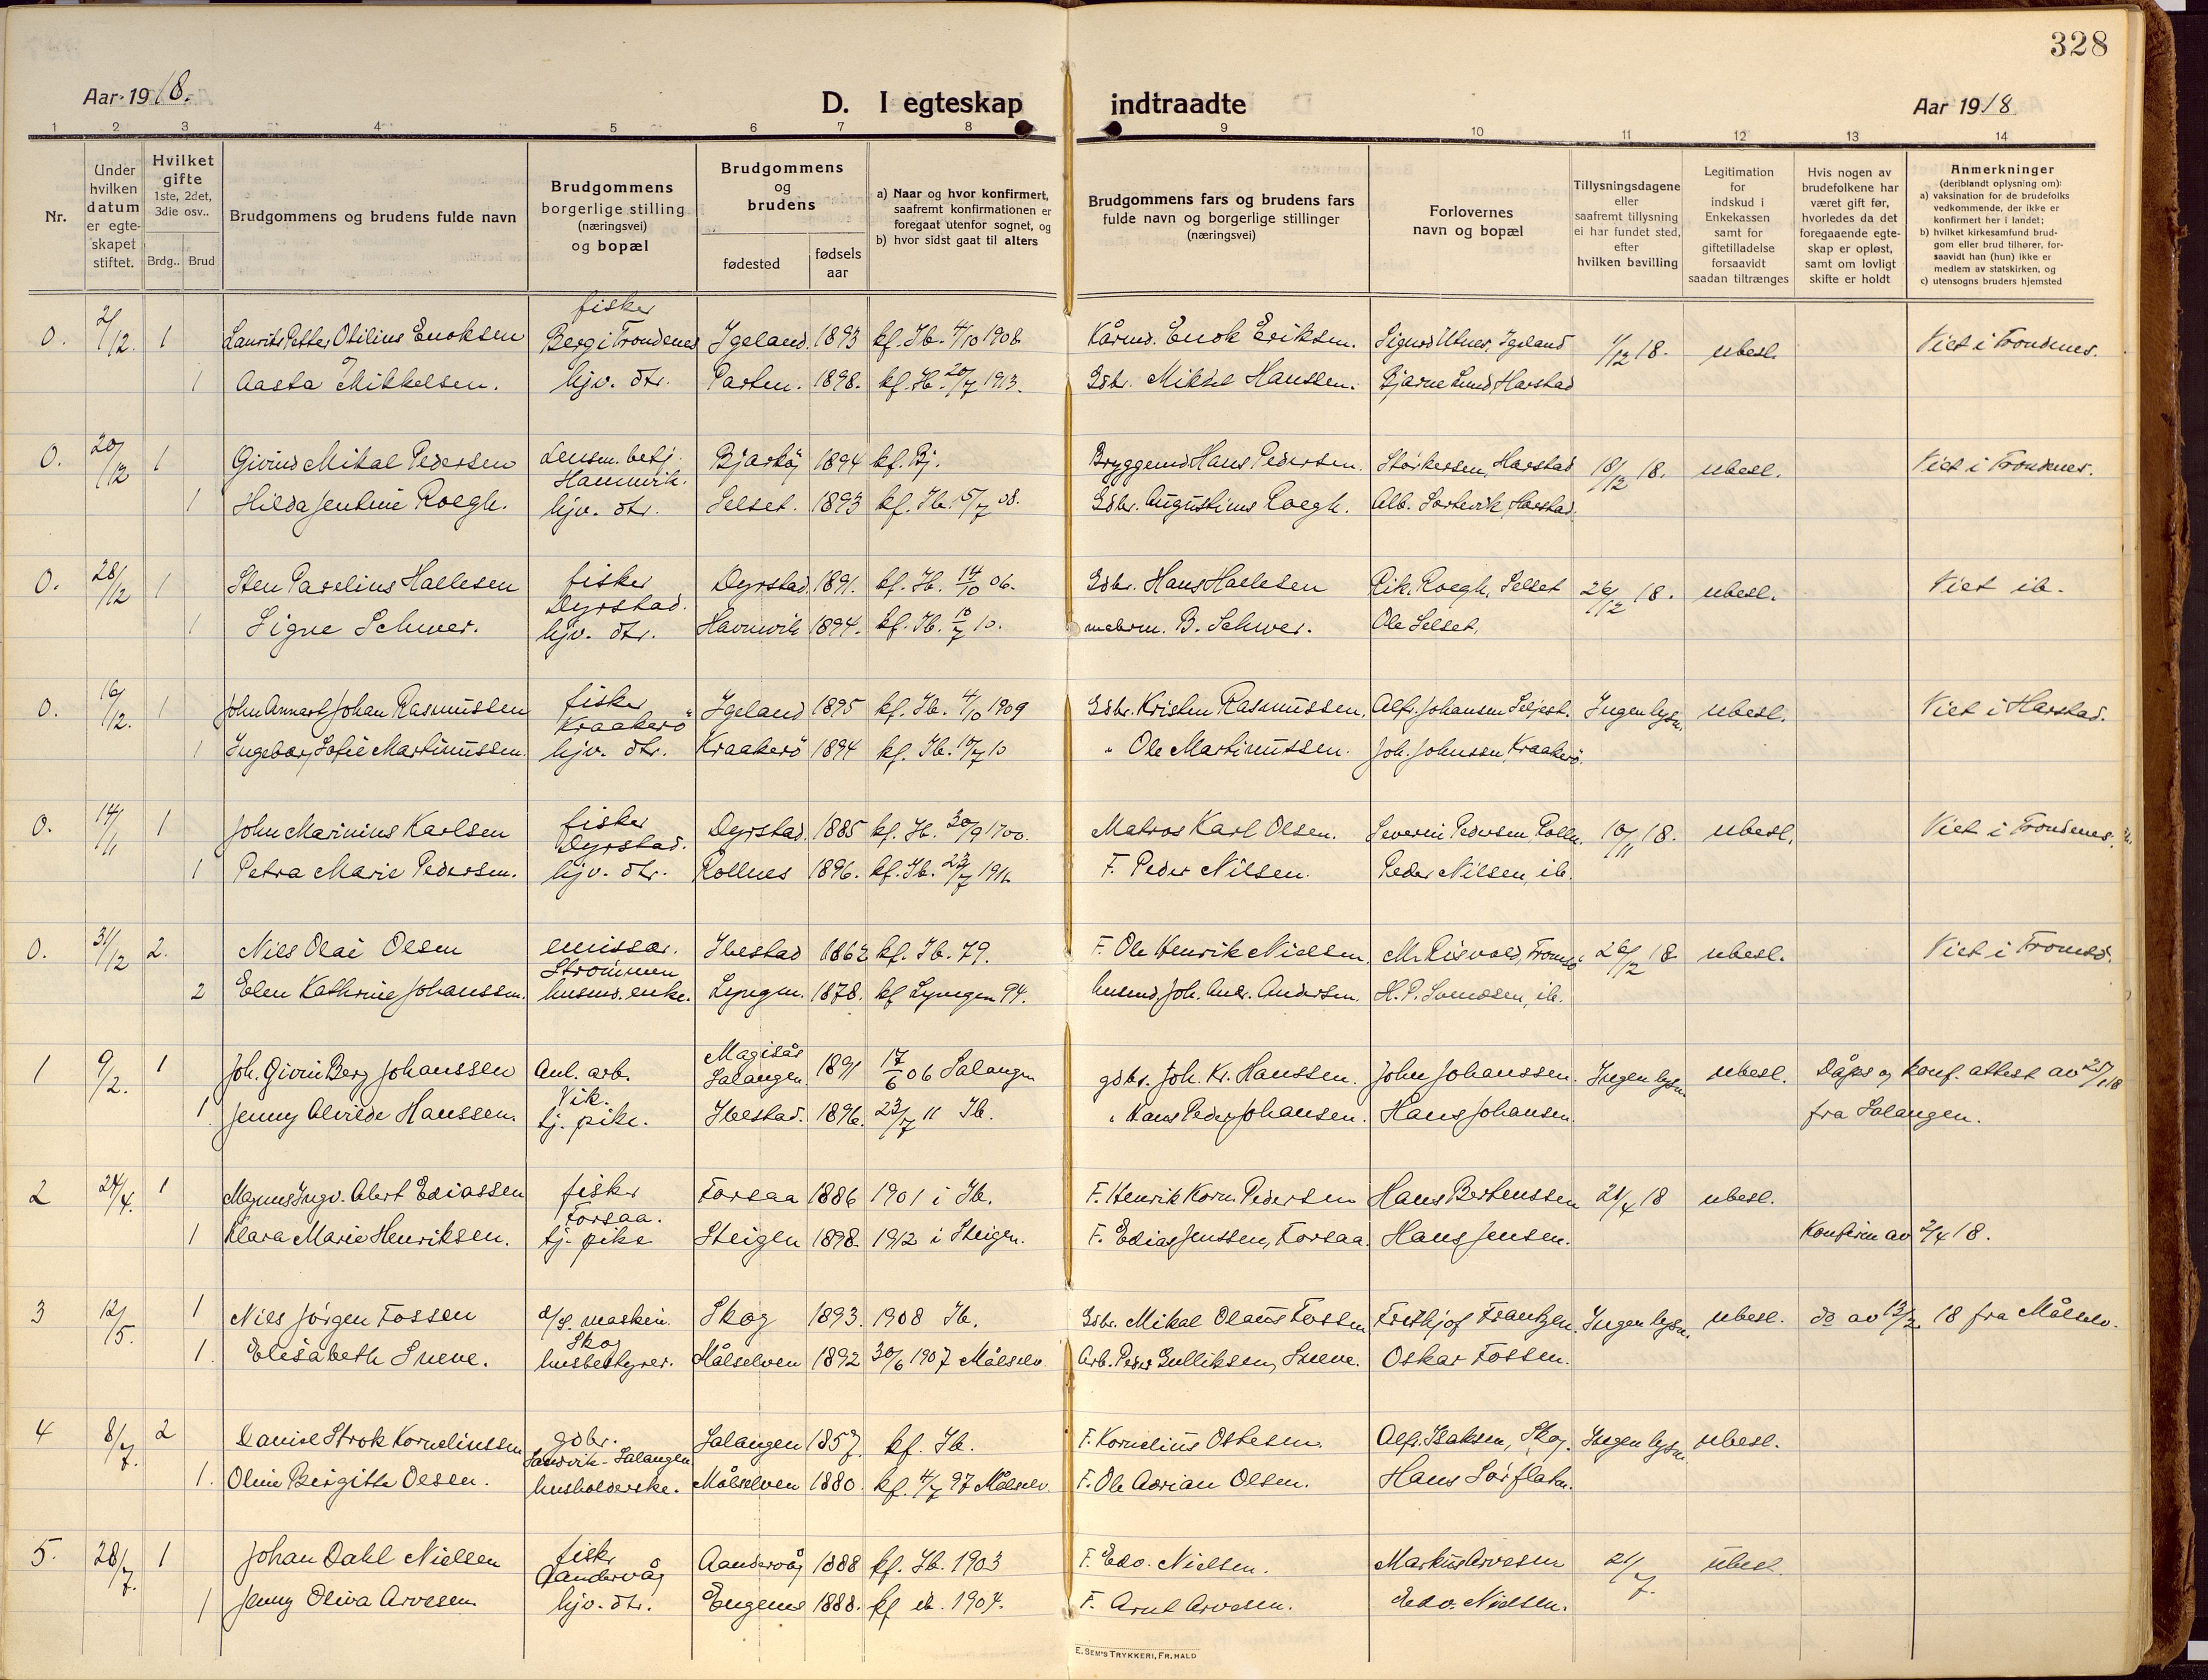 328
Aar 1918.
D. I egteskap indtraadte
Aar 1918
1 2 3 4 5 6 7 8 9 10 11 12 13 14
Nr.
Under hvilken datum er egteskapet stiftet.
Hvilket gifte 1ste, 2det, 3die osv..
Brdg.. Brud
Brudgommens og brudens fulde navn
Brudgommens borgerlige stilling (næringsvei) og bopæl
Brudgommens og brudens
fødested
fødsels aar
a) Naar og hvor konfirmert, saafremt konfirmationen er foregaat utenfor sognet, og
b) hvor sidst gaat til alters
Brudgommens fars og brudens fars fulde navn og borgerlige stillinger (næringsvei)
Forlovernes navn og bopæl
Tillysningsdagene eller saafremt tillysning ei har fundet sted, efter hvilken bevilling
Legitimation for indskud i Enkekassen samt for giftetilladelse forsaavidt saadan tiltrænges
Hvis nogen av brudefolkene har været gift før, hvorledes da det foregaaende egteskap er opløst, samt om lovligt skifte er holdt
Anmerkninger
(deriblandt oplysning om):
a) vaksination for de brudefolks vedkommende, der ikke er konfirmert her i landet;
b) hvilket kirkesamfund brudgom eller brud tilhører, forsaavidt han (hun) ikke er medlem av statskirken, og
c) utensogns bruders hjemsted
0. 2/12. 1 Laurits Petter Otilius Enoksen fisker Berg i Trondenes Igeland 1893 kf. Ib. 4/10 1908 Kårmd. Enok Eriksen. Sigurd Utnes, Igeland 1/12 18. ubesl. Viet i Trondenes.
1 Aasta Mikkelsen. hjv. dtr. 1898. kf. Ib. 20/7 1913. Gdbr. Mikkel Hanssen. Bjarne Lund Harstad
0. 20/12 1 Eivind Mikal Pedersen Lensm. betj. Hamnvik. Bjarköy 1894 kf. Bj. Hans Pedersen. Störkersen, Harstad 18/12 18. ubesl. Viet i Trondenes.
1 Hilda Jentine Roegh. hjv. dtr. Selset. 1893 kf. Ib. 5/7 08. Gdbr. Augustinus Roegh. Alb. Sortevik, Harstad.
0. 28/12 1 Sten Parelius Hallesen fisker Dyrstad. Dyrstad 1891. kf. Ib. 14/10 06. Gdbr. Hans Hallesen Rik. Roegh, Selset 26/12 18. ubesl. Viet ib.
1 Signe Schwer. hjv. dtr. Havnvik 1894. kf. Ib. 10/7 10. B. Schwer. Ole Selset.
0. 16/12. 1 John Annart Johan Rasmussen fisker Kraakerö Igeland 1895 kf. Ib. 4/10 1909 Gdbr. Kristen Rasmussen. Alfr. Johansen Ingen lysn. ubesl. Viet i Harstad.
1 Ingeborg Sofie Martinussen. hjv. dtr. Kraakerö 1894 kf. Ib. 10/7 10 " Ole Martinussen. Joh. Johnsen, Kraakerö.
0. 14/11 1 John Marinius Karlsen fisker Dyrstad. Dyrstad. 1885 kf. Ib. 30/9 1700. Matros Karl Olsen. Severin Pedersen, Rolln. 10/11 18. ubesl. Viet i Trondenes.
1 Petra Marie Pedersen. hjv. dtr. Rollnes 1896. kf. Ib. 23/7 1911. F. Peder Nilsen. Peder Nilsen, ib.
0. 31/12 2. Nils Olai Olsen emissær. Strömmen Ibestad 1862 kf. Ib. 79. F. Ole Henrik Nielsen. M. Risvold, Tromsö 26/12 18 ubesl. Viet i Tromsö.
2 Elen Kathrine Johanssen. husmd. enke. Lyngen. 1878. kf Lyngen 94. husmd. Joh. Andr. Andersen. H. P. Svendsen, ib.
1 9/2. 1 Joh. Eivin Berg Johanssen Anl. arb. Vik. Salangen 1891 17/6 06 Salangen gdbr. Joh. Kr. Hanssen. John Johanssen. Ingen lysn. ubesl. Dåps og konf. attest av 25/1 18
1 Jenny Alvilde Hanssen. tj. pike. Ibestad. 1896. 23/7 11 Ib. " Hans Peder Johansen. Hans Johansen. fra Salangen.
2 24/4. 1 Magnus Ingv. Albert Ediassen fisker Forsaa. Forsaa 1886 1901 i Ib. F. Henrik Korn. Pedersen Hans Bertenssen 21/4 18 ubesl.
1 Klara Marie Henriksen. tj. pike Steigen 1898. 1912 i Steigen. F. Edias Jenssen, Forsaa. Hans Jensen. Konfirm av 2/4 18.
3 12/5. 1 Nils Jörgen Fossen maskin. Skog Skog 1893. 1908 Ib. Gdbr. Mikal Olaus Fossen Frithjof Frantzen. Ingen lysn. ubesl. do av 13/2 18 fra Målselv.
1. Elisabeth Sneve. husbestyrer. Målselven 1892 30/6 1907 Målselv. Arb. Peder Gulliksen, Sneve. Oskar Fossen.
4 8/7. 2 Daniel Strok Korneliussen gdbr. Sandvik - Salangen Salangen 1857. kf. Ib. F. Kornelius Ostesen. Alfr. Isaksen, Skog. Ingen lysn. ubesl.
1. Oline Bergitte Olsen. husholderske. Målselven 1880. kf. 4/7 97 Målselv. F. Ole Adrian Olsen. Hans Sörflaten.
5. 28/7. 1 Johan Dahl Nielsen fisk. Aandervåg Aandervåg 1888 kf. Ib. 1903 F. Edv. Nielsen. Markus Arvesen 21/7. ubesl.
1 Jenny Oliva Arvesen hjv. dtr. Engenes 1888. kf ib. 1904. F. Arnt Arvesen. Edv. Nielsen.
E. SEM'S TRYKKERI, FR. HALD